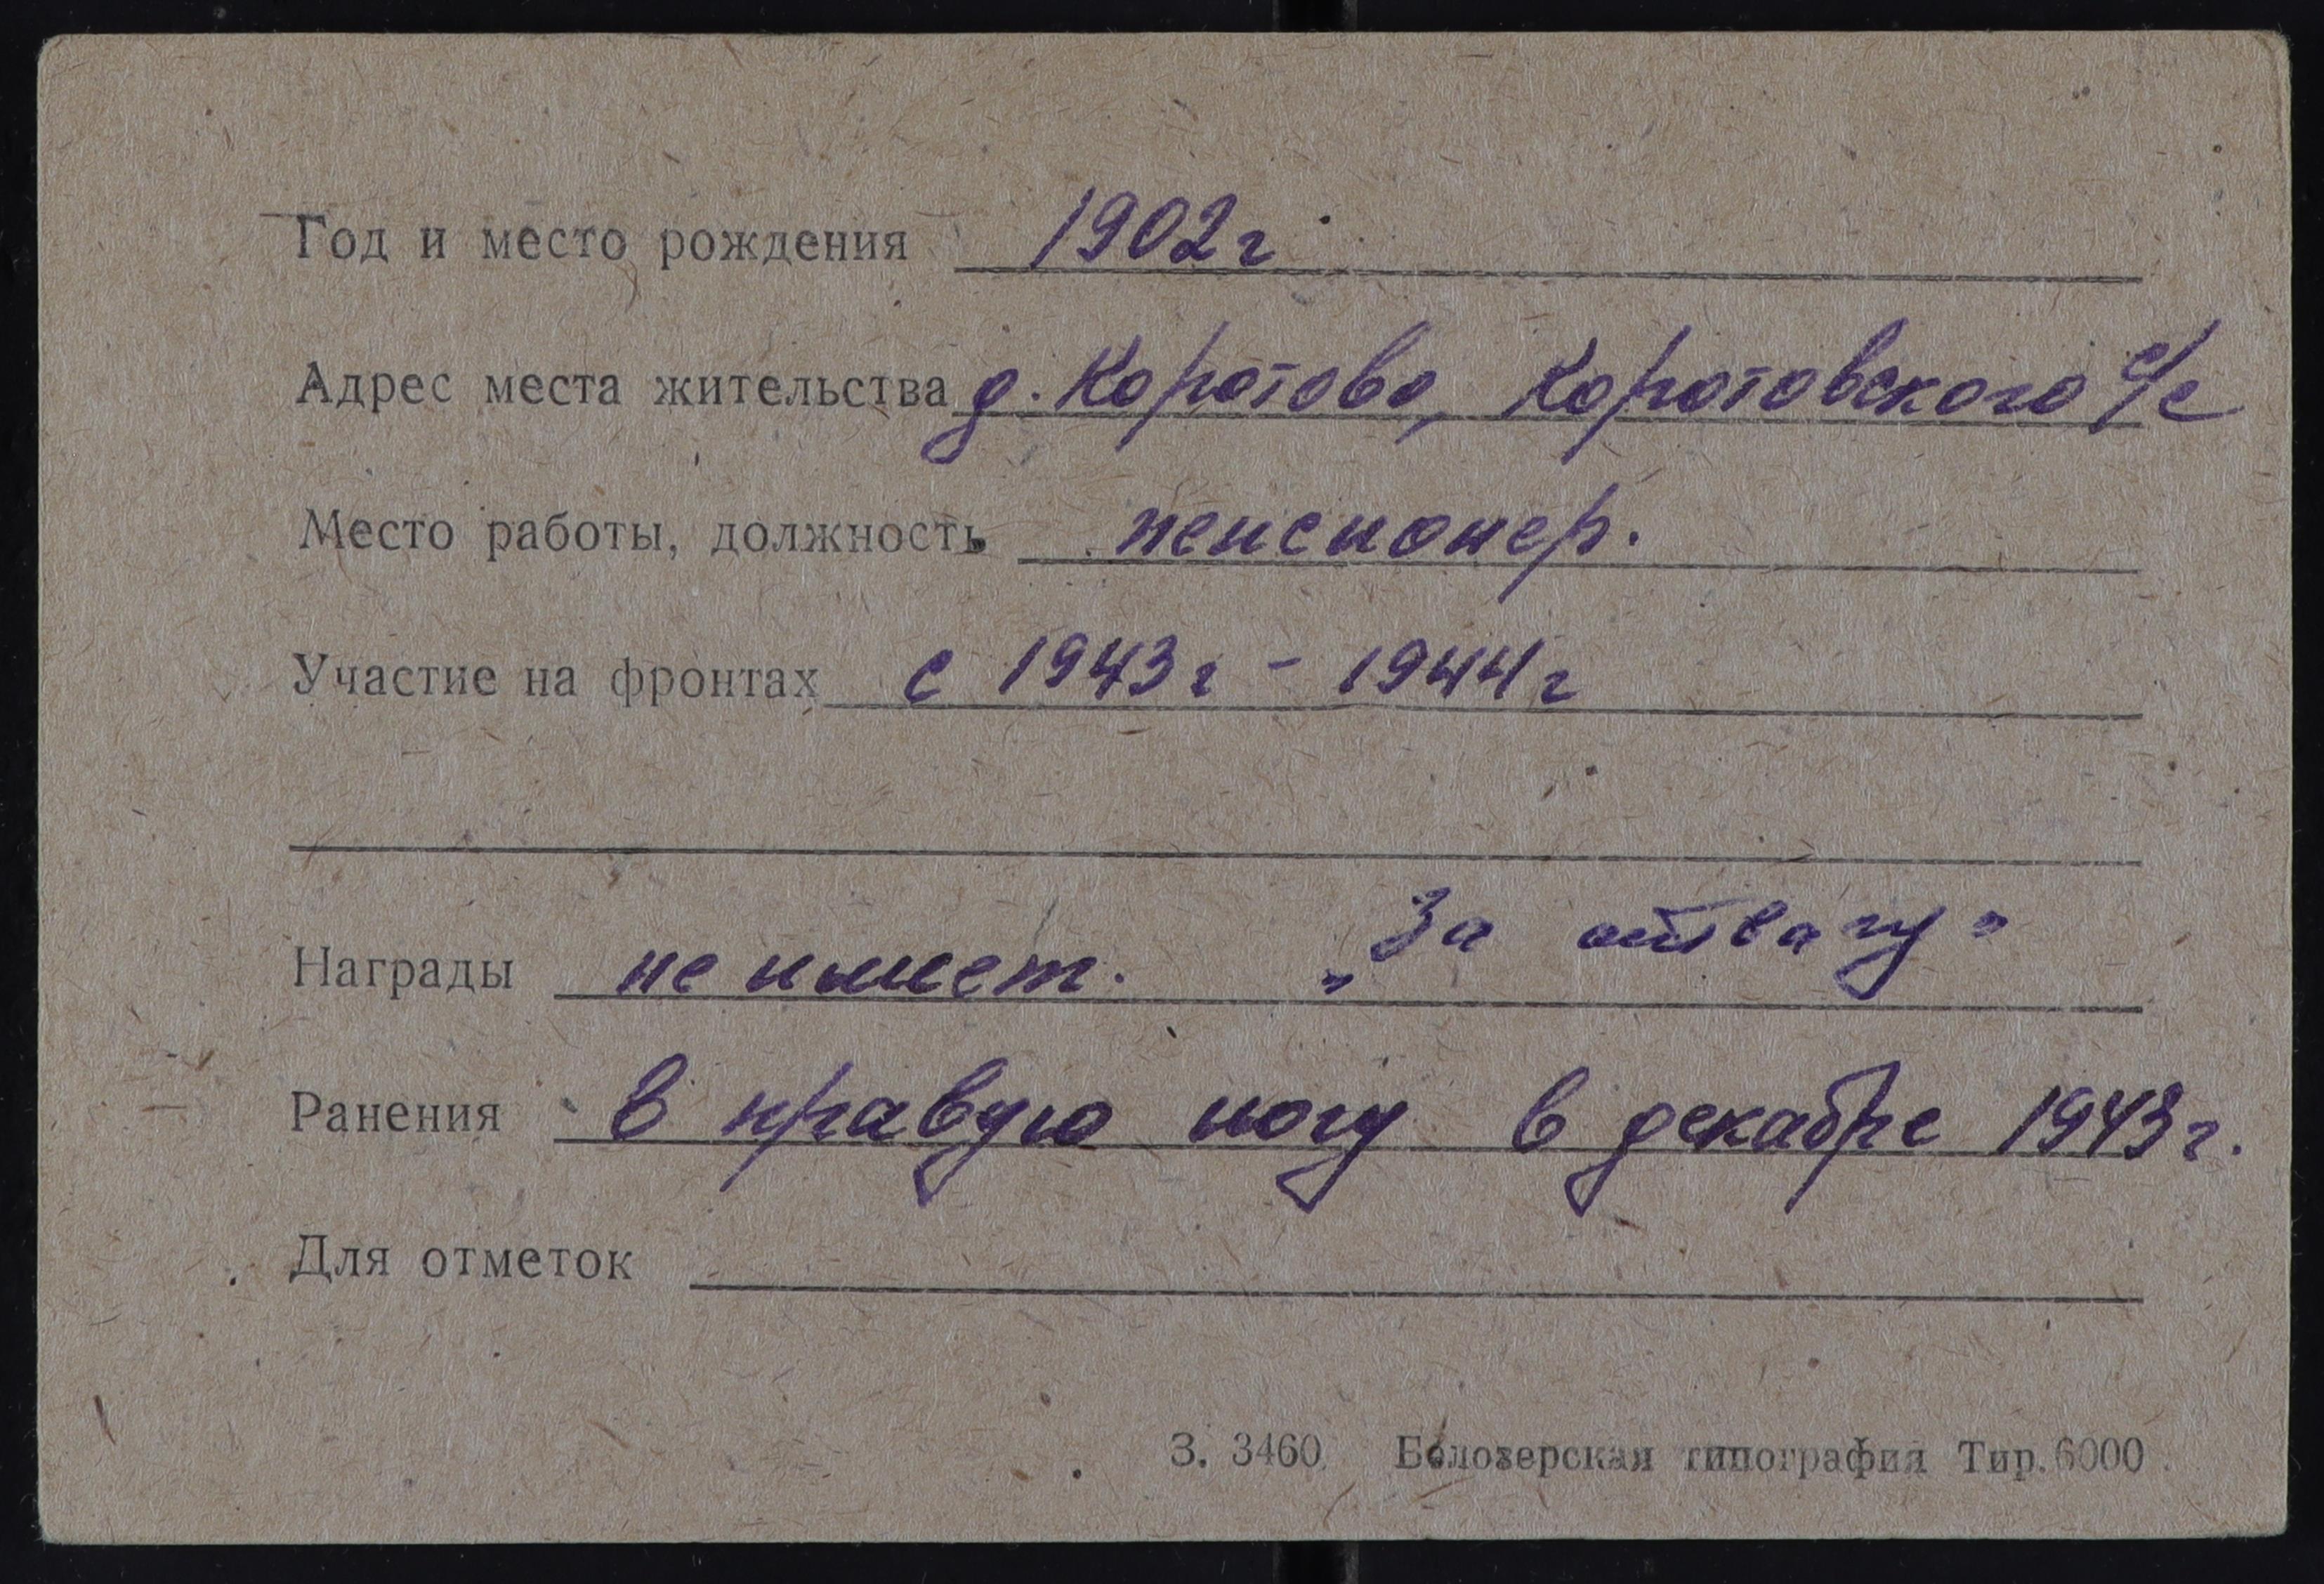 Год и место рождения 1902г.
Адрес места жительства д. Коротово, Коротовского с/с
Место работы, должность пенсионер.
Участие на фронтах с 1943г - 1944г
Награды не имеет. „За отвагу"
Ранения в правую ногу в декабре 1943г.
Для отметок
З. 3460 Белозерская типография Тир. 6000